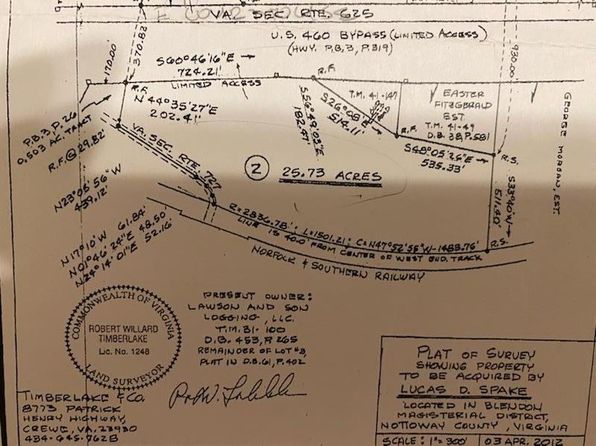 VA. SEC. RTE. 625
U.S. 460 BYPASS (LIMITED ACCESS)
(HWY. P.B.3, P.B19)
170.00'
370.83'
S60°46'16"E
724.21'
LIMITED ACCESS
R.F.
930.00'
P.B.3, P.26
0.503 AC. TRACT
R.F.
N 44°35'27"E
202.41'
S56°49'03"E
182.47'
S26°08'E
514.11'
T.M. 41-147
EASTER
FITZGERALD
EST.
T.M. 41-49
D.B. 38, P.581
GEORGE MORGAN, EST.
R.F.
R.F. @ 29.82'
VA. SEC. RTE. 727
S48°05'26"E
535.33'
R.S.
N23°05'56"W
439.12'
2
25.73 ACRES
S33°40'W
511.40'
R=2836.78', L=1501.21', C=N47°52'55"W-1483.76'
LINE IS 40.0' FROM CENTER OF WEST BND. TRACK
R.S.
N17°10'W 61.84'
N01°46'24"E 48.50'
N24°14'01"E 52.16'
NORFOLK & SOUTHERN RAILWAY
COMMONWEALTH OF VIRGINIA
ROBERT WILLARD
TIMBERLAKE
Lic. No. 1248
LAND SURVEYOR
PRESENT OWNER:
LAWSON AND SON
LOGGING, LLC.
T.M. 31-100
D.B. 453, P. 265
REMAINDER OF LOT #3
PLAT IN D.B. 61, P. 402
TIMBERLAKE & CO.
8773 PATRICK
HENRY HIGHWAY,
CREWE, VA. 23930
434-645-9628
PLAT OF SURVEY
SHOWING PROPERTY
TO BE ACQUIRED BY
LUCAS D. SPAKE
LOCATED IN BLENDON
MAGISTERIAL DISTRICT,
NOTTOWAY COUNTY, VIRGINIA
SCALE: 1"=300' 03 APR. 2012